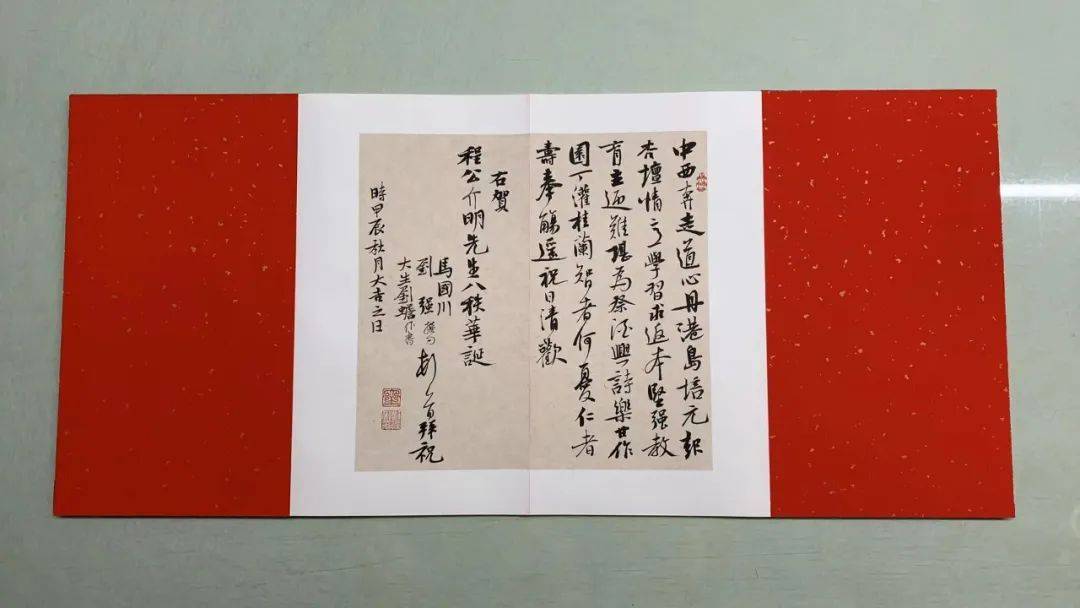 中西奔走道心丹港島培元報
杏壇情學習求返本堅强教
育立迎難堪為祭酒興詩樂甘作
園丁灌桂蘭智者何憂仁者
壽奉觴遥祝日清歡
右賀
程公介明先生八秩華誕
馬國川
劉强撰句
大生劉書
頓首拜祝
時甲辰秋月大吉之日